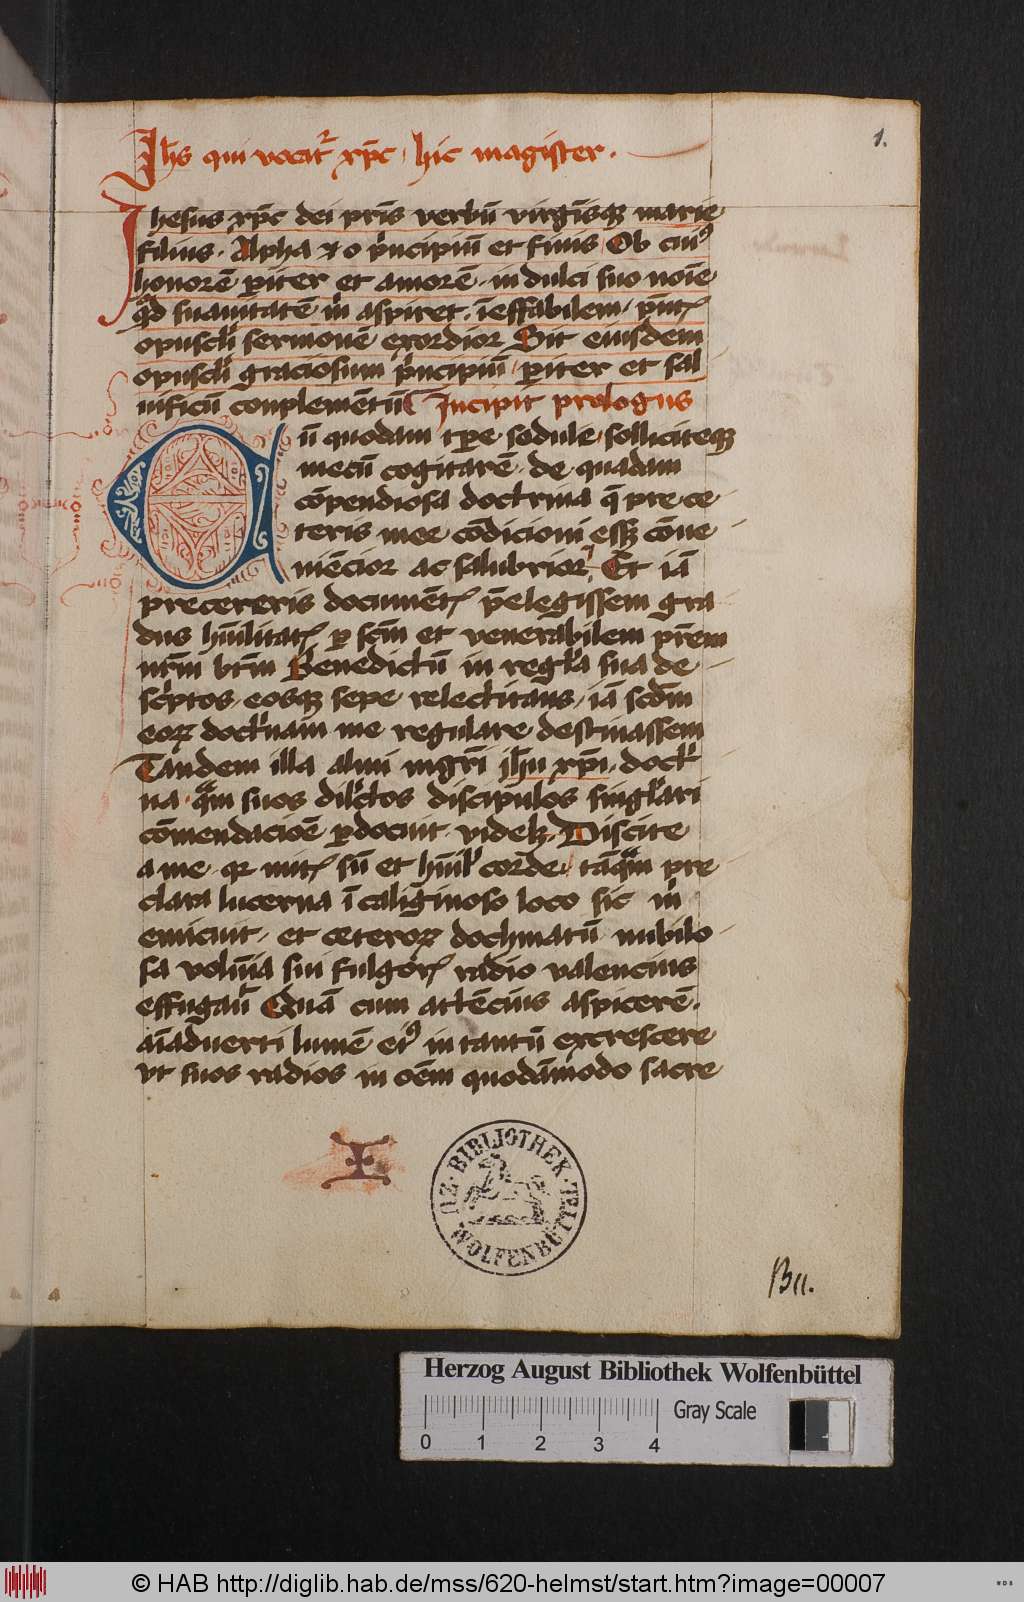 Jhs qui vocat' xpc hic magister.
1.
Jhesus xpc dei pris verbū virgīsqꝫ marie
filius. Alpha et o p'ncipiū et finis Ob cui9
honorē pīter et amorē in dulci suo noīe
qd suauitatē m' aspiret. īeffabilem
opuscli sermonē exordior Sit eiusdem
opuscli graciosum p'ncipiū piter et sal
uificū conplemētū Incipit prologus
Cū quodam tpe sedule solliciteqꝫ
mecū cogitarē de quadam
cōpendiosa doctrina q̄ pre ce
teris mee cōdicioni essꝫ cōue
niēcior ac salubrior Et iā
pre ceteris p̄elegissem gra
dus hūilitat' p scm et venerabilem prēm
nrm btm Benedictū in regl'a sua de
sc'ptos eosqꝫ sepe relectitans iā scdm
eorꝝ doct'nam me regulare destinassem
Tandem illa almi mgri jhu xpi doct'
na qm suos dil'ctos discipulos singl'ari
cōmendacioē pdocuit videlꝫ Discite
a me qr mit' sū et hūil' corde tāqm pre
clara lucerna ī caliginoso loco sic m'
emicuit et ceterorꝝ dochmatū nubilo
sa volūia sui fulgor' radio valencius
effugauit Quā cum attēcius aspicerē.
aīaduerti lumē ei9 in tantū excrescere
vt suos radios in oēm quodāmodo sacre
BIBLIOTHEK
ZU
WOLFENBÜTTEL
Herzog August Bibliothek Wolfenbüttel
Gray Scale
0 1 2 3 4
© HAB http://diglib.hab.de/mss/620-helmst/start.htm?image=00007